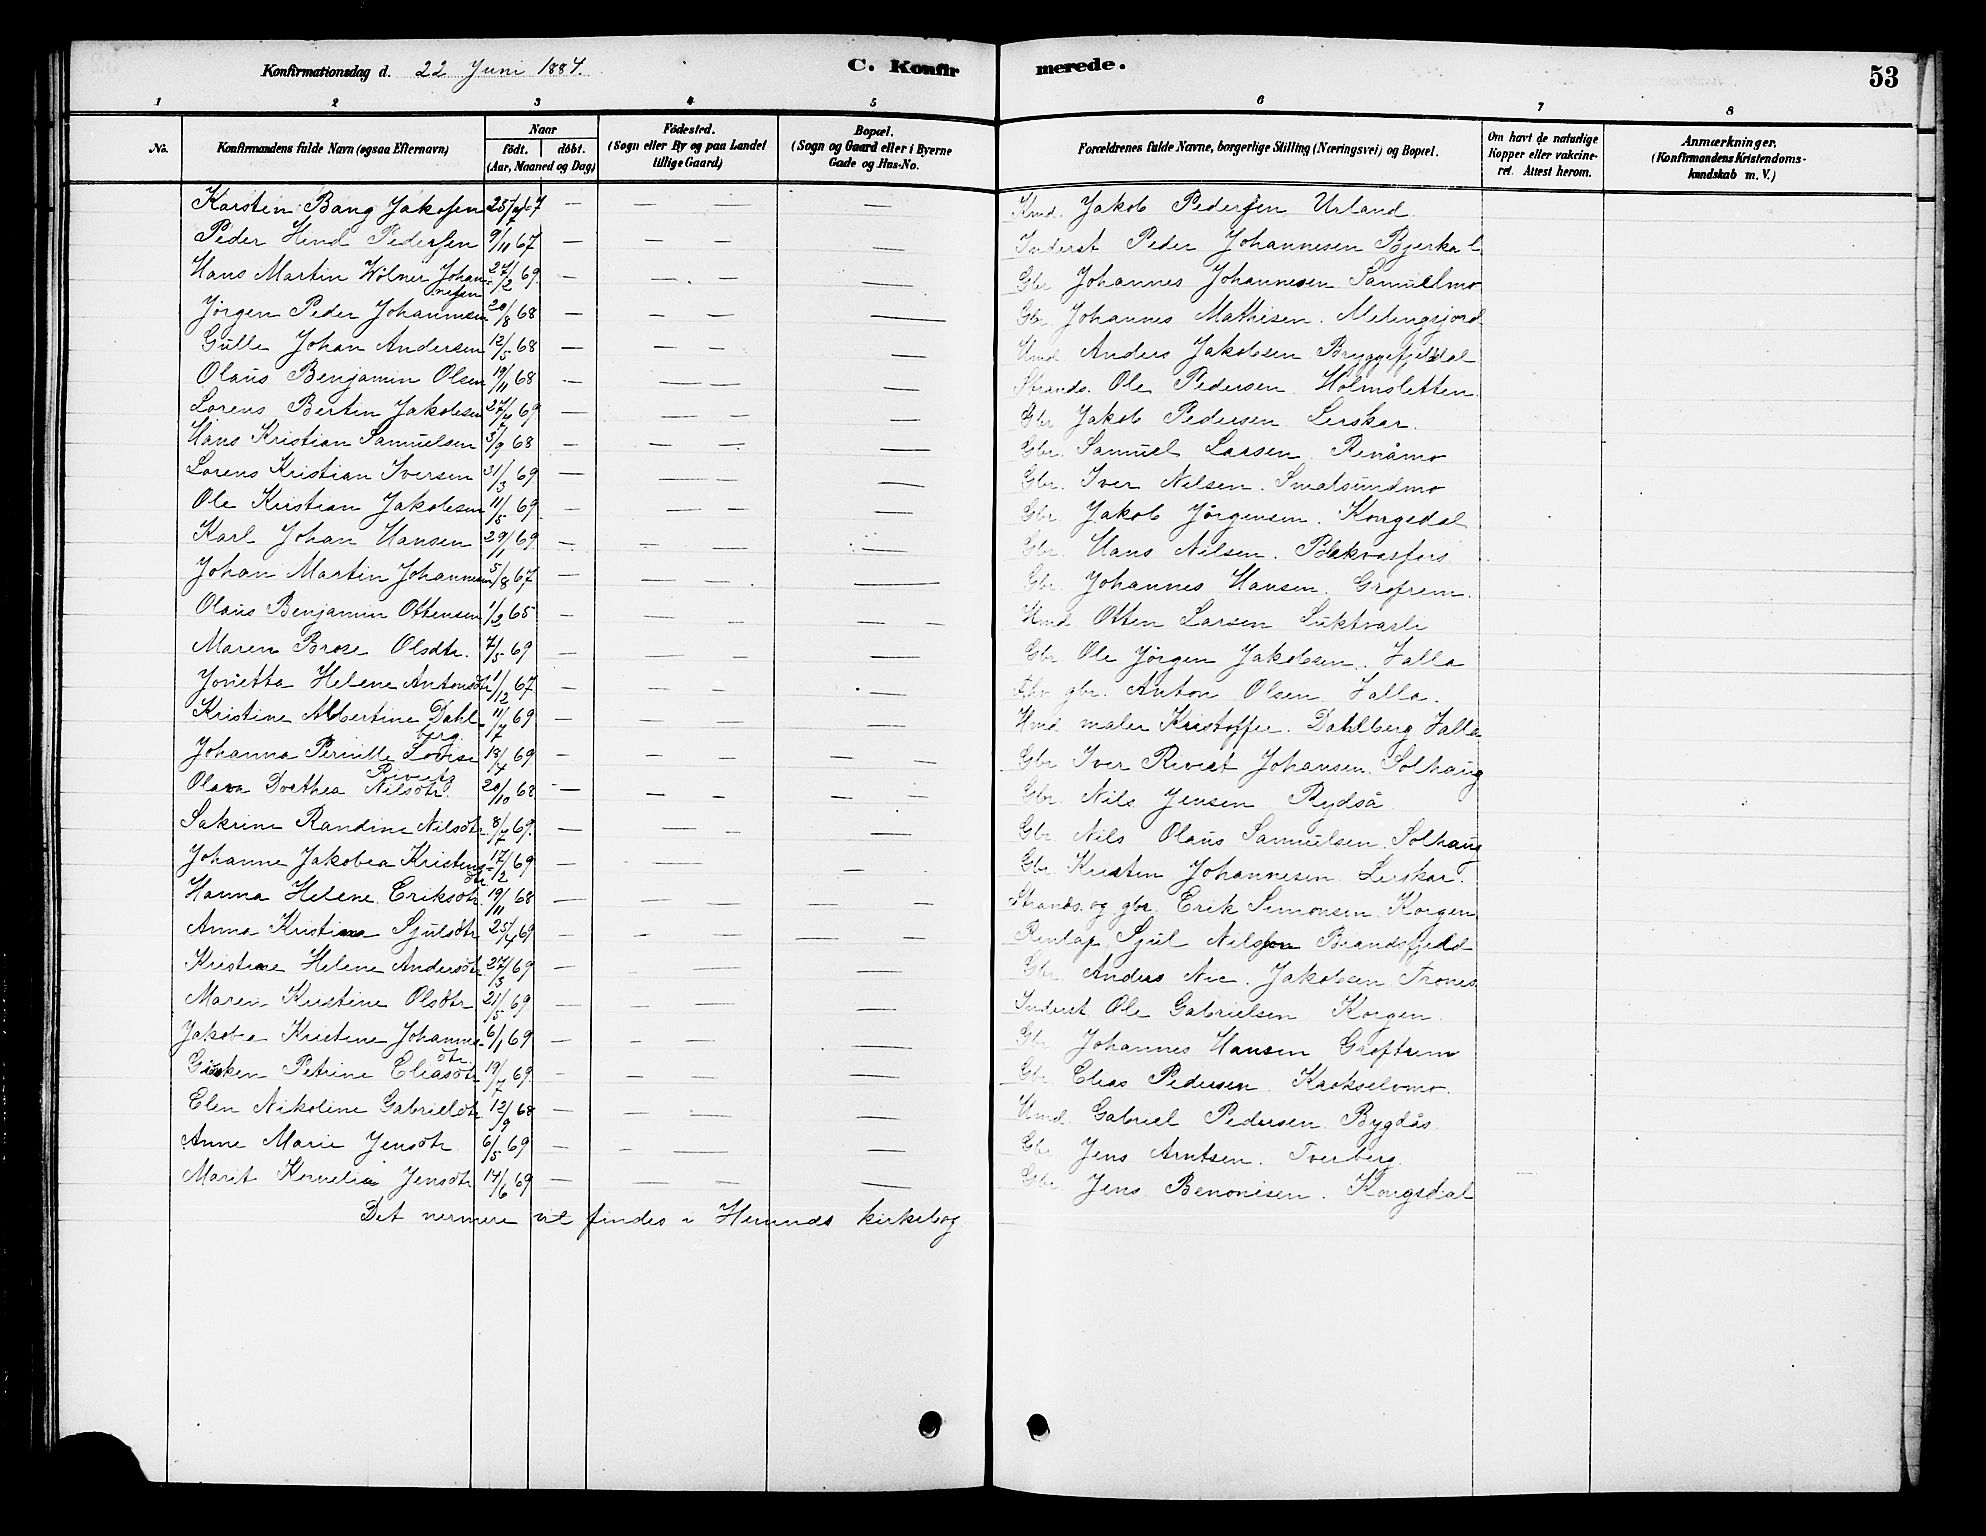 Konfirmationsdag d. 22 Juni 1884.
C. Konfirmerede.
53
1 2 3 4 5 6 7 8
No.
Konfirmandens fulde Navn (ogsaa Efternavn)
Naar
født. døbt.
(Aar, Maaned og Dag)
Födested.
(Sogn eller By og paa Landet
tillige Gaard)
Bopæl.
(Sogn og Gaard eller i Byerne
Gade og Hus-No.
Forældrenes fulde Navne, borgerlige Stilling (Næringsvei) og Bopæl.
Om havt de naturlige
Kopper eller vakcine-
ret. Attest herom.
Anmærkninger.
(Konfirmandens Kristendoms-
kundskab m. V.)
Karsten Bang Jakobsen 67 — — — — Hmd. Jakob Pedersen Urland
Peder Hend Pedersen 9/11 67 — — — — Inderst Peder Johannesen Bjerka
Hans Martin Wölner Johan-
nesen 27/2 69 — — — — Gbr Johannes Johannesen Samuelmo
Jörgen Peder Johannesen 20/8 68 — — — — Gbr Johannes Mathisen. Melingsjord
Gulle Johan Andersen 12/5 68 — — — — Hmd Anders Jakobsen Bryggefjeldal
Olaus Benjamin Olsen 19/11 68 — — — — Strands. Ole Pedersen Holmsletten
Lorens Bertin Jakobsen 27/7 69 — — — — Gbr Jakob Pedersen Lerskar.
Hans Kristian Samuelsen 3/9 68 — — — — Gbr. Samuel Larsen Renåmo
Lorens Kristian Iversen 31/3 69 — — — — Gbr. Iver Nilsen. Smalsundmo
Ole Kristian Jakobsen 11/5 69 — — — — Gbr. Jakob Jörgensen. Kongsdal
Karl Johan Hansen 29/1 69 — — — — Gbr. Hans Nilsen.
Johan Martin Johannesen 5/8 67 — — — — Gbr. Johannes Hansen. Groftrem.
Olaus Benjamin Ottensen 1/2 65 — — — — — Hmd Otten Larsen Luktvasli
Maren Brose Olsdtr. 7/5 69 — — — — Gbr Ole Jörgen Jakobsen. Valla
Jonetta Helene Antonsdtr 1/12 67 — — — — Fhv gbr. Anton Olsen Valla.
Kristine Albertine Dahl-
berg. 11/7 69 — — — — Hmd maler Kristoffer. Dahlberg Valla
Johanna Pernille Lovise
Rivists 18/4 69 — — — — — Gbr Iver Rivist Johansen. Solhaug
Olava Dorthea Nilsdtr. 20/10 68 — — — — — Gbr. Nils Jensen Rydså
Sakrine Randine Nilsdtr. 8/7 69. — — — — Gbr. Nils Olaus Samuelsen. Solhaug
Johanne Jakobea Kristens-
dtr 17/2 69 — — — — Gbr. Kristen Johannesen. Lerskar.
Hanna Helene Eriksdtr 19/11 68 — — — — — Strands. og gbr. Erik Simonsen. Korgen
Anna Kristina Sjulsdtr 25/4 69 — — — — — Renlap, Sjul Nilsson Brandsfjeld
Kristine Helene Andersdtr 27/3 69 — — — — Gbr. Anders Nic. Jakobsen Trones
Maren Kristine Olsdtr 21/5 69 — — — — Inderst Ole Gabrielsen Korgen.
Jakoba Kristine Johannes-
dtr 6/1 69 — — — — Gbr. Johannes Hansen Groftrem
Petrine Eliasdtr 19/7 69 — — — — Gbr. Elias Pedersen. Krokselvmo.
Elen Nikoline Gabrielsdtr 12/9 68 — — — — Hmd. Gabriel Pedersen. Bygdås.
Anne Marie Jensdtr 6/5 69 — — — — Gbr Jens Arntsen. Tverberg
Marit Kornelia Jensdtr 14/6 69 — — — — Gbr Jens Benonisen. Kongsdal
Det nermere vil findes i Hemnæs kirkebog